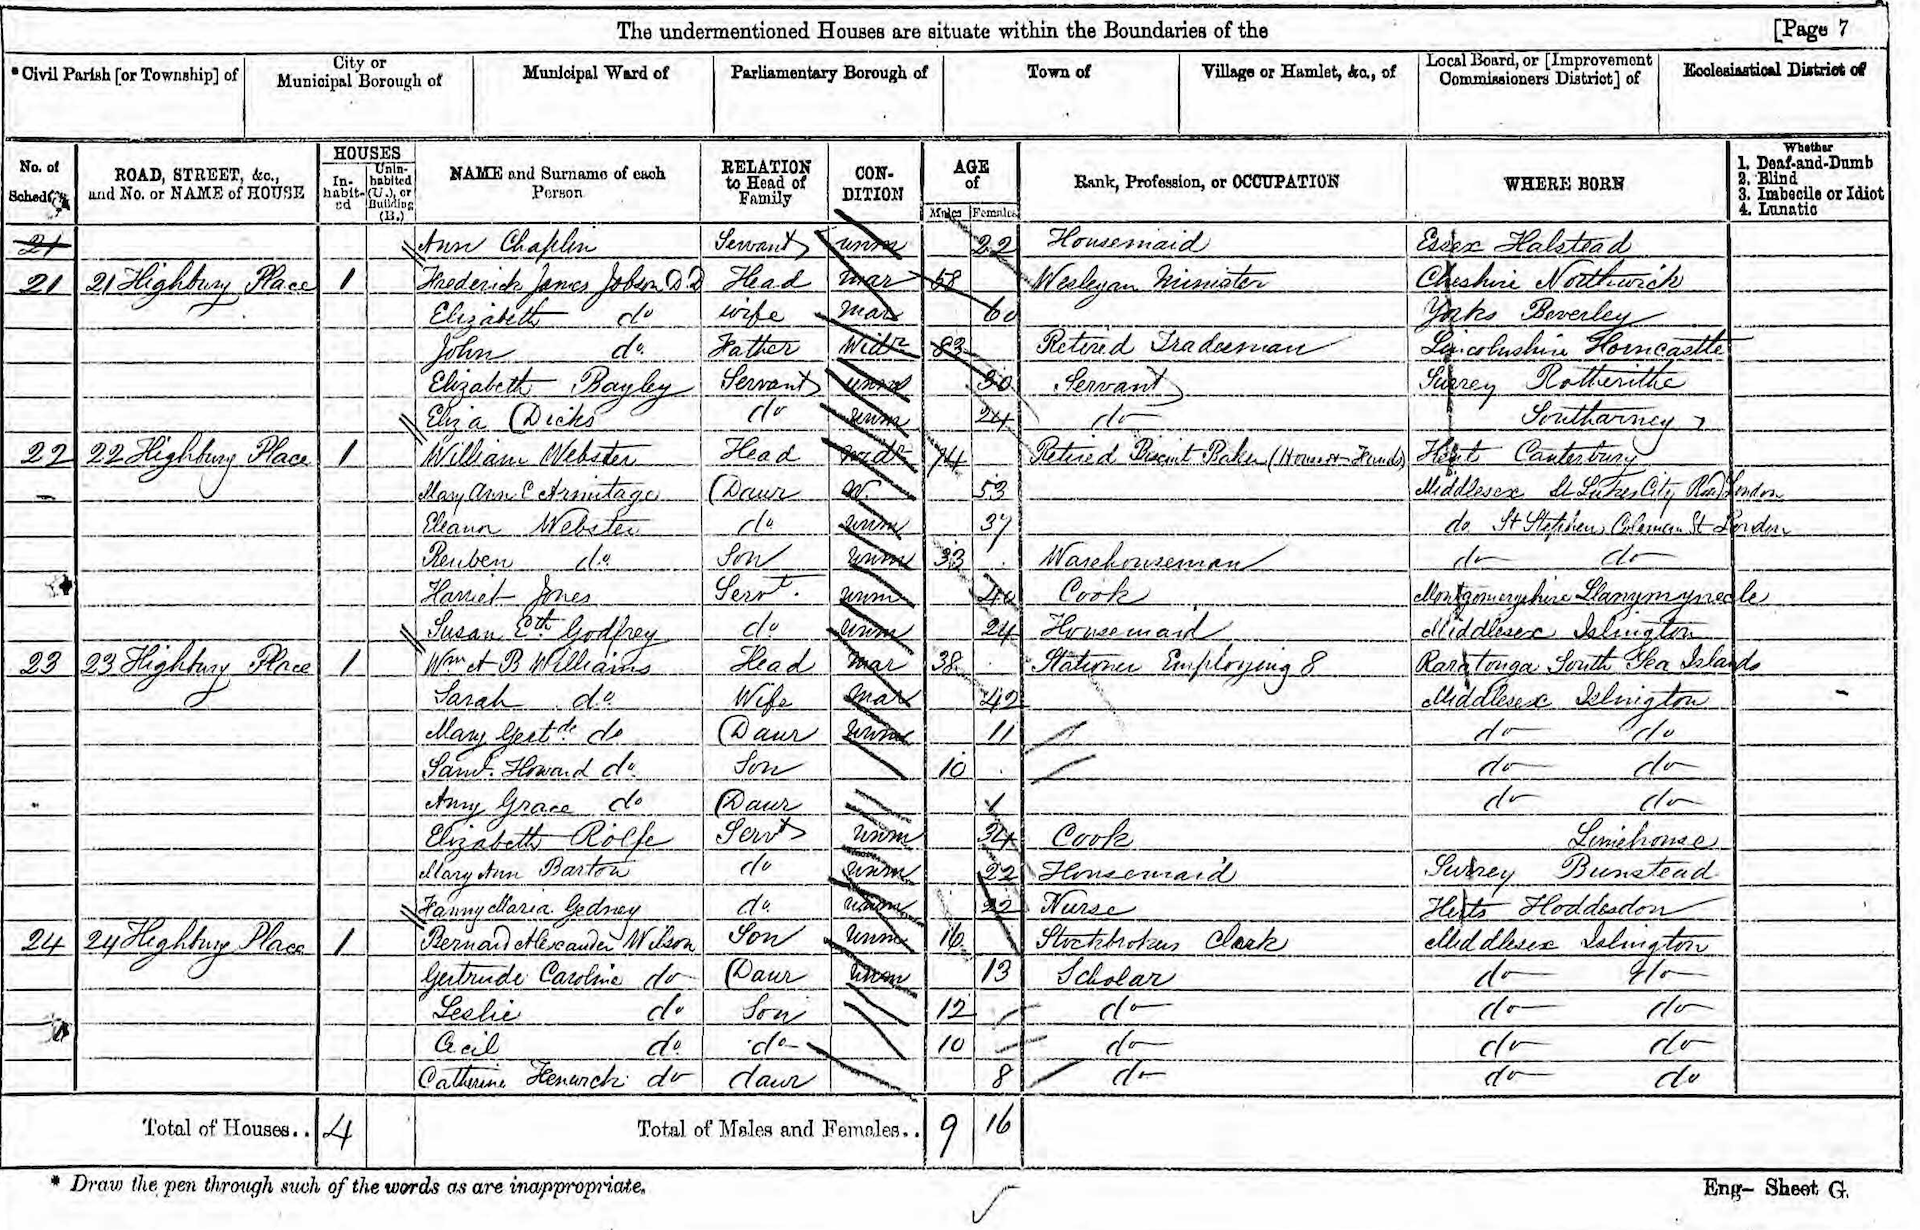 The undermentioned Houses are situate within the Boundaries of the [Page 7
*Civil Parish [or Township] of City or Municipal Borough of Municipal Ward of Parliamentary Borough of Town of Village or Hamlet, &c., of Local Board, or [Improvement Commissioners District] of Ecclesiastical District of
No. of Schedule ROAD, STREET, &c., and No. or NAME of HOUSE HOUSES In-habit-ed Unin-habited (U.), or Building (B.) NAME and Surname of each Person RELATION to Head of Family CON-DITION AGE of Males Females Rank, Profession, or OCCUPATION WHERE BORN Whether 1. Deaf-and-Dumb 2. Blind 3. Imbecile or Idiot 4. Lunatic
21 Ann Chaplin Servant unm 22 Housemaid Essex Halstead
21 21 Highbury Place 1 Frederick James Jobson D.D Head mar 58 Wesleyan Minister Cheshire Northwich
Elizabeth do wife mar 60 Yorks Beverley
John do Father Widr 83 Retired Tradesman Lincolnshire Horncastle
Elizabeth Bayley Servant unm 30 Servant Surrey Rotherithe
Eliza Dicks do unm 24 do
22 22 Highbury Place 1 William Webster Head widr 74 Retired Biscuit Baker Kent Canterbury
Mary Ann C Armitage Daur W. 53 Middlesex St Lukes City Road London
Eleanor Webster do unm 37 do St Stephen Coleman St London
Reuben do Son unm 33 Warehouseman do do
Harriet Jones Servt. unm 40 Cook Montgomeryshire
Susan Eth Godfrey do unm 24 Housemaid Middlesex Islington
23 23 Highbury Place 1 Wm A B Williams Head mar 38 Stationer Employing 8 Raratonga South Sea Islands
Sarah do Wife mar 42 Middlesex Islington
Mary Gertde do Daur unm 11 do do
Saml. Howard do Son 10 do do
Amy Grace do Daur 1 do do
Elizabeth Rolfe Servt unm 34 Cook Limehouse
Mary Ann Barton do unm 22 Housemaid Surrey Bunstead
Fanny Maria Gedney do unm 22 Nurse Herts Hoddesdon
24 24 Highbury Place 1 Bernard Alexander Wilson Son unm 16 Stockbrokers Clerk Middlesex Islington
Gertrude Caroline do Daur unm 13 Scholar do do
Leslie do Son 12 do do do
Cecil do do 10 do do do
Catherine Fenwick do daur 8 do do do
Total of Houses.. 4 Total of Males and Females.. 9 16
* Draw the pen through such of the words as are inappropriate.
Eng- Sheet G.